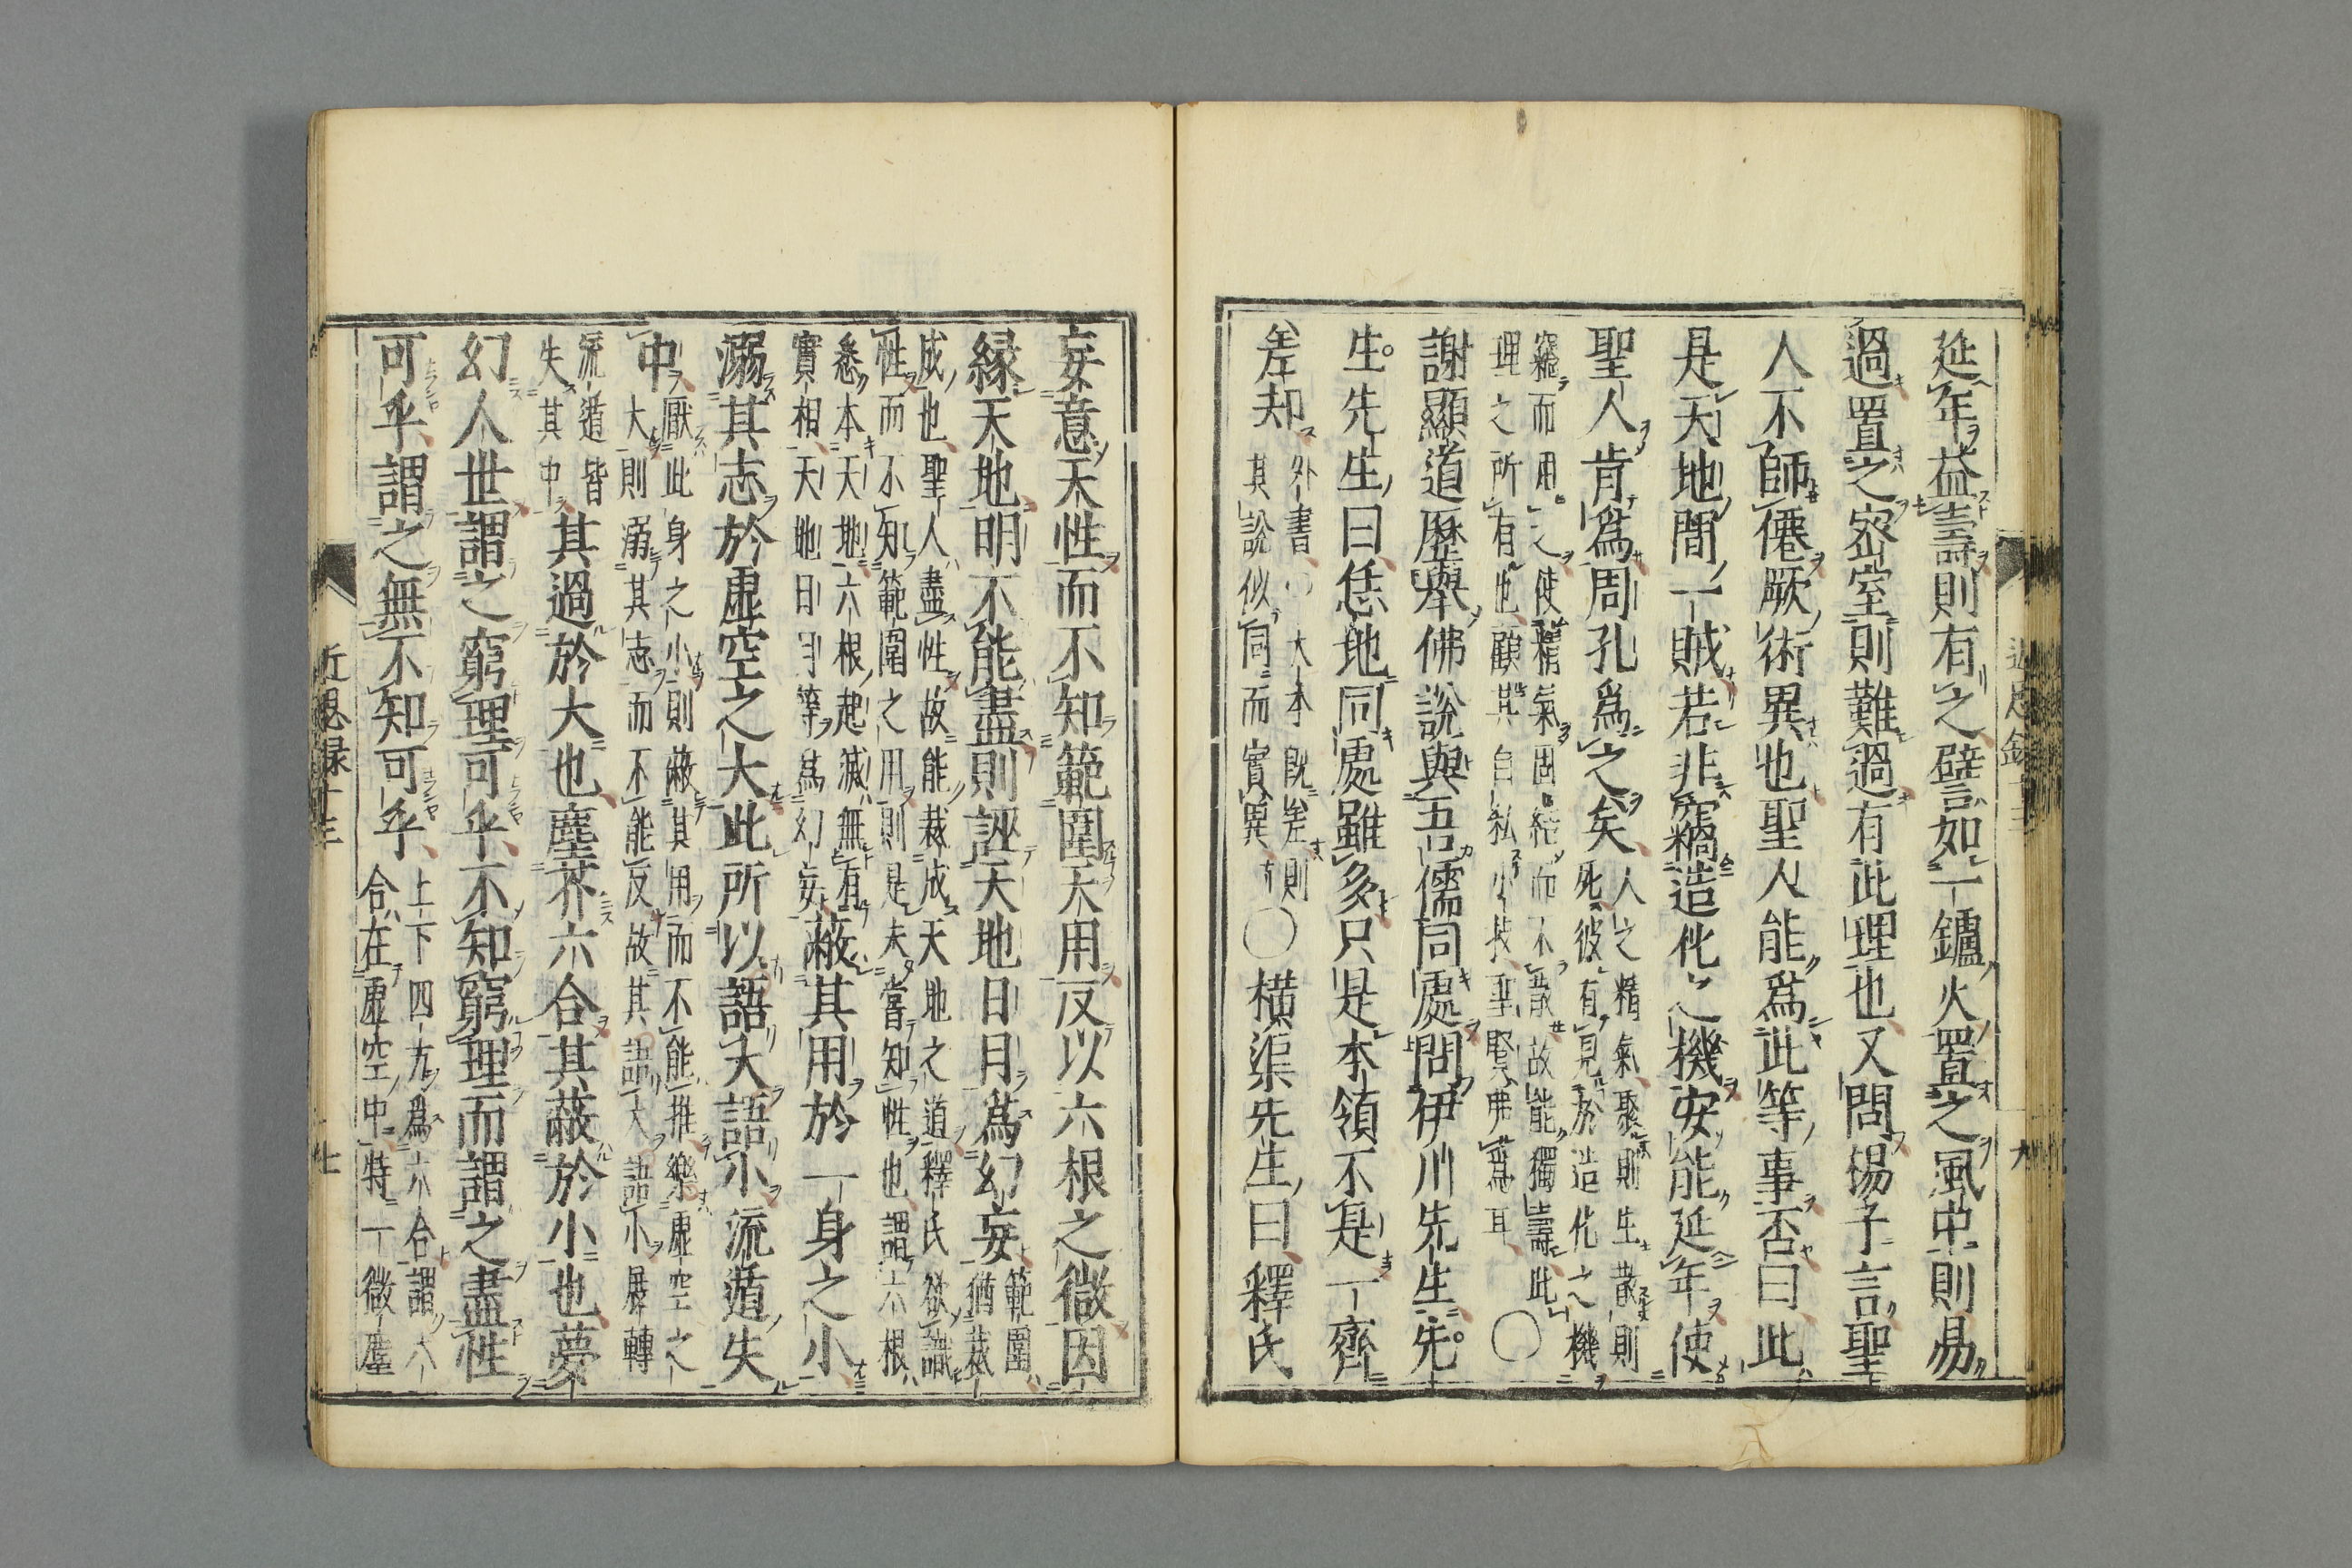 延年益壽則有之譬如一鑪火置之風中則易
過置之宻室則難過有此理也又問揚子言聖
人不師僊厥術異也聖人能爲此等事否曰此
是天地間一賊若非竊造化之機安能延年使
聖人肯爲周孔爲之矣
人之精氣聚則生散則
死彼有見於造化之機
竊而用之使精氣固結而不散故能獨壽此
理之所有也顧其自私小技聖賢弗爲耳
○
謝顯道歷舉佛說與吾儒同處問伊川先生先
生先生曰恁地同處雖多只是本領不是一齊
差却
外書○大本既差則
其說似同而實異
○橫渠先生曰釋氏
妄意天性而不知範圍天用反以六根之微因
緣天地明不能盡則誣天地日月爲幻妄
範圍
猶裁
成也聖人盡性故能裁成天地之道釋氏欲識
性而不知範圍之用則是未嘗知性也謂六根
悉本天地六根起滅無有
實相天地日月等爲幻妄
蔽其用於一身之小
溺其志於虛空之大此所以語大語小流遁失
中
厭此身之小則蔽其用而不能推樂虛空之
大則溺其志而不能反故其語大語小展轉
流遁皆
失其中
其過於大也塵芥六合其蔽於小也夢
幻人世謂之窮理可乎不知窮理而謂之盡性
可乎謂之無不知可乎
上下四方爲六合謂六
合在虛空中特一微塵
近思録十三
七